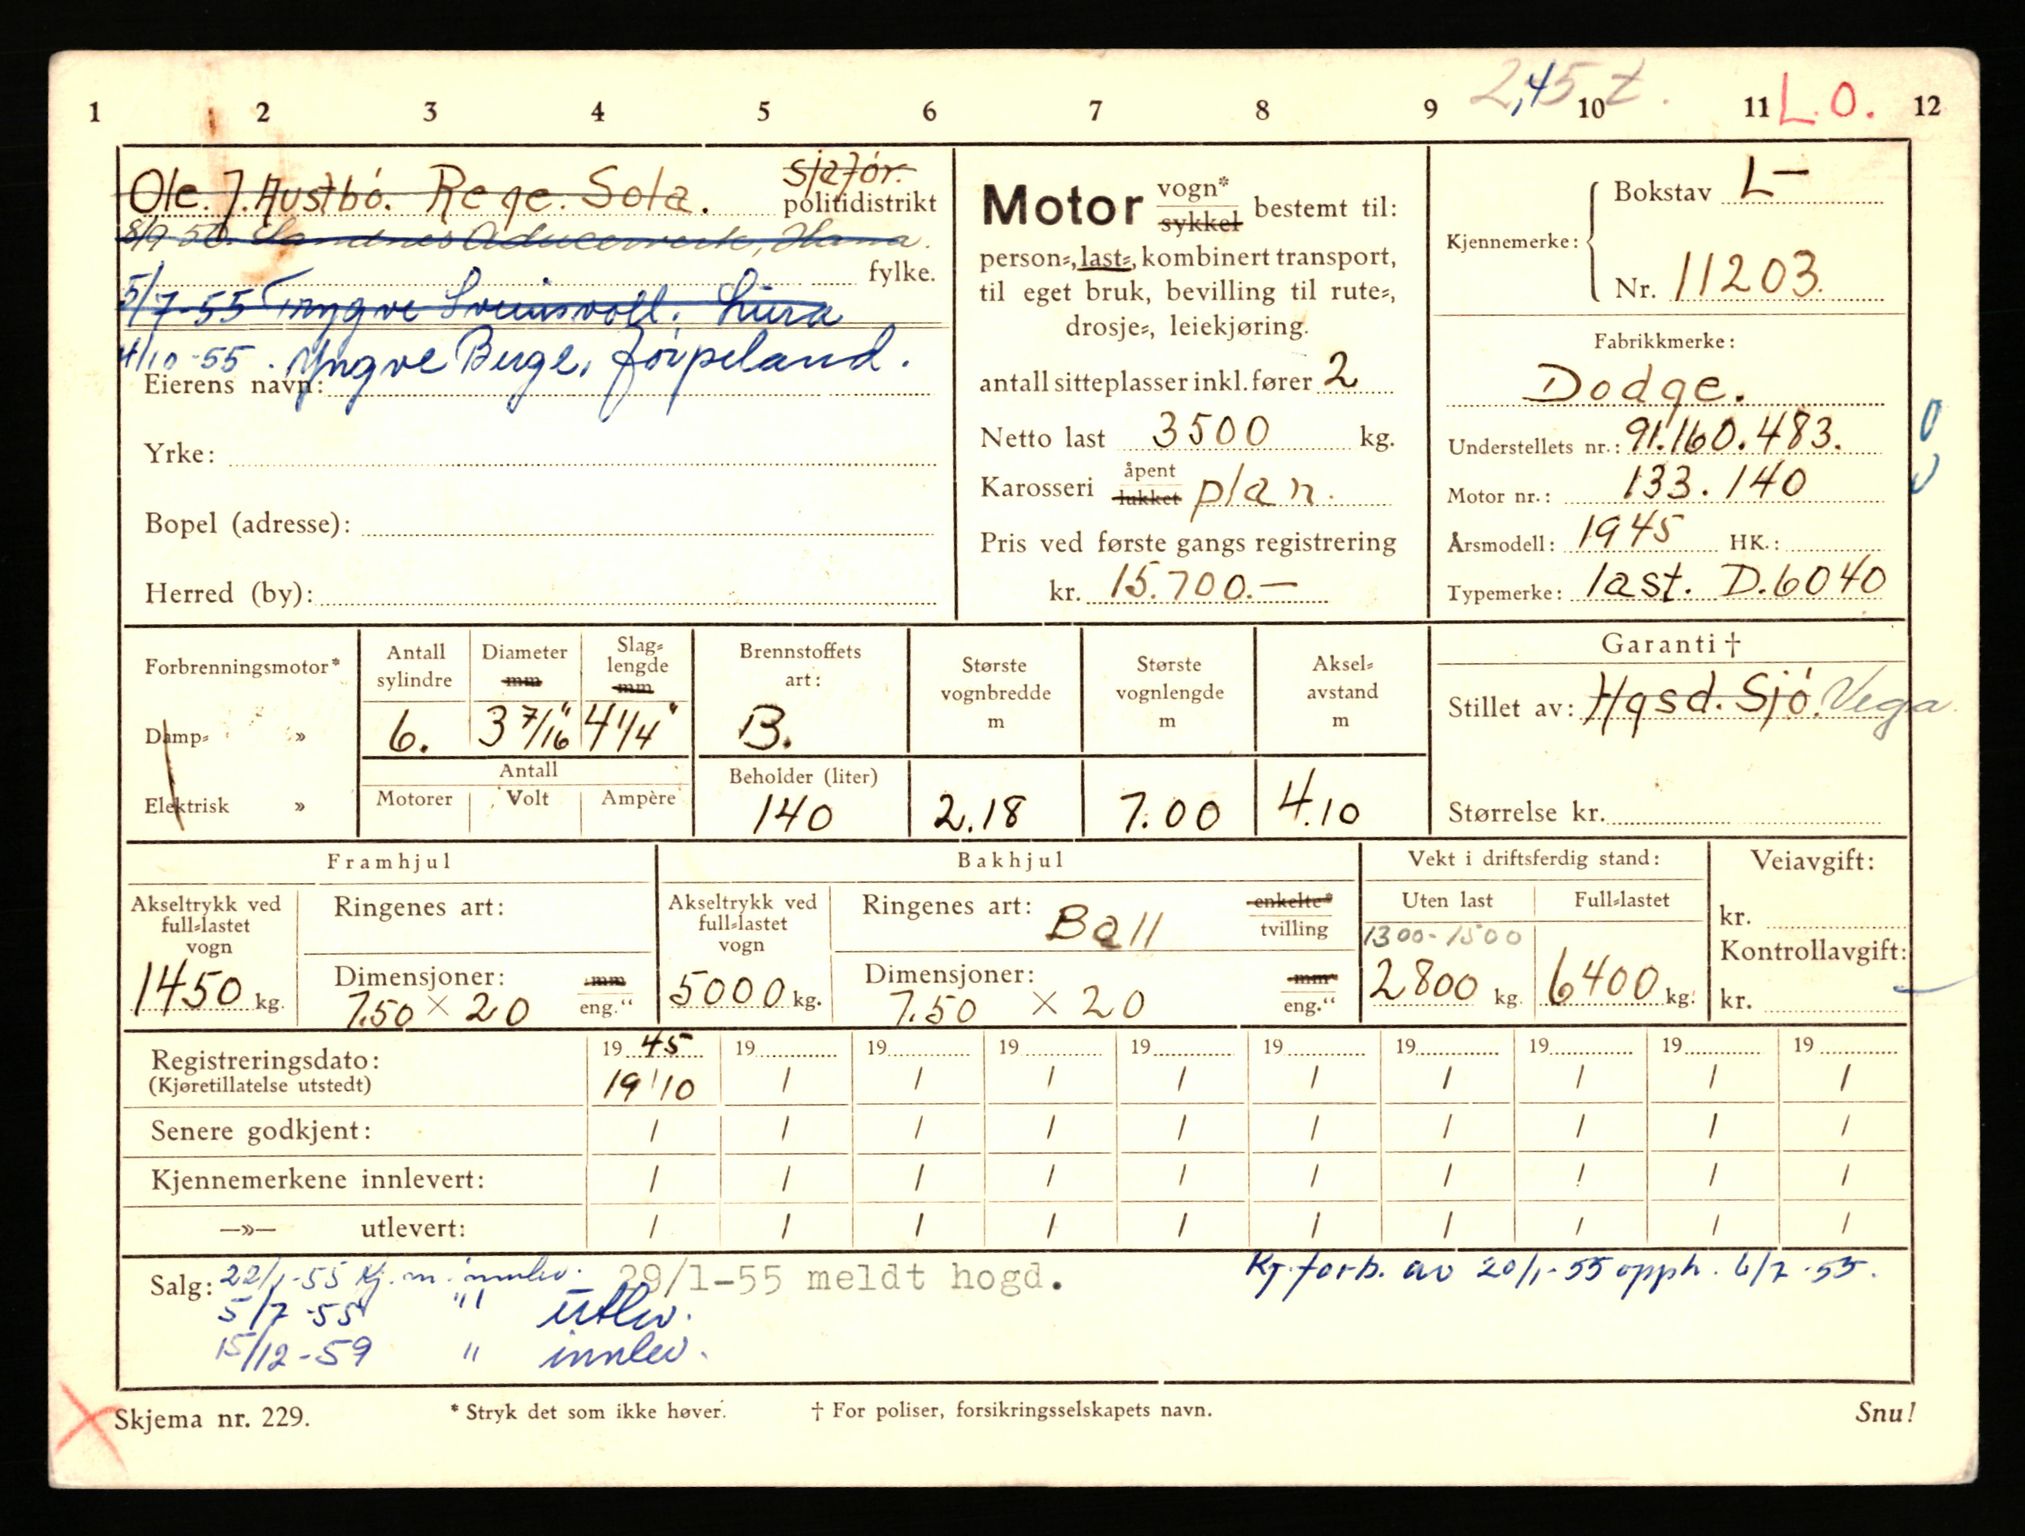 2,45 t.
L.O.
1 2 3 4 5 6 7 8 9 10 11 12
Ole. J. Austbø. Rege. Sola. sjafør.
politidistrikt
8/9-50. Sandnes Aducerverk, Hana.
fylke.
5/7-55 Trygve Sveinsvoll. Lura
4/10-55. Yngve Berge, Jørpeland.
Eierens navn:
Yrke:
Bopel (adresse):
Herred (by):
Motor vogn* sykkel bestemt til:
person-, last-, kombinert transport,
til eget bruk, bevilling til rute-,
drosje-, leiekjøring.
antall sitteplasser inkl. fører 2
Netto last 3500 kg.
Karosseri åpent lukket plan.
Pris ved første gangs registrering
kr. 15.700.—
Kjennemerke: Bokstav L-
Nr. 11203.
Fabrikkmerke:
Dodge.
Understellets nr.: 91.160.483.
Motor nr.: 133.140
Årsmodell: 1945 HK.:
Typemerke: last. D.6040
Forbrenningsmotor*
Damp- »
Elektrisk »
Antall sylindre
6.
Diameter mm
3 7/16"
Slag-lengde mm
4 1/4"
Antall
Motorer Volt Ampère
Brennstoffets art:
B.
Beholder (liter)
140
Største vognbredde m
2.18
Største vognlengde m
7.00
Aksel-avstand m
4.10
Garanti †
Stillet av: Hgsd. Sjø. Vega
Størrelse kr.
Framhjul
Akseltrykk ved full-lastet vogn
1450 kg.
Ringenes art:
Dimensjoner: mm
7.50 × 20 eng."
Bakhjul
Akseltrykk ved full-lastet vogn
5000 kg.
Ringenes art: Ball enkelte* tvilling
Dimensjoner: mm
7.50 × 20 eng."
Vekt i driftsferdig stand:
Uten last Full-lastet
1300-1500
2800 kg. 6400 kg.
Veiavgift:
kr.
Kontrollavgift:
kr.
Registreringsdato: 19 45 19 19 19 19 19 19 19 19 19
(Kjøretillatelse utstedt) 19/10 / / / / / / / / /
Senere godkjent: / / / / / / / / / /
Kjennemerkene innlevert: / / / / / / / / / /
—»— utlevert: / / / / / / / / / /
Salg: 22/1-55 Kj.m. innlev. 29/1-55 meldt hogd. Kj.forb. av 20/1-55 opph. 6/7-55.
5/7-55 " utlev.
15/12-59 " innlev.
Skjema nr. 229. * Stryk det som ikke høver. † For poliser, forsikringsselskapets navn. Snu!